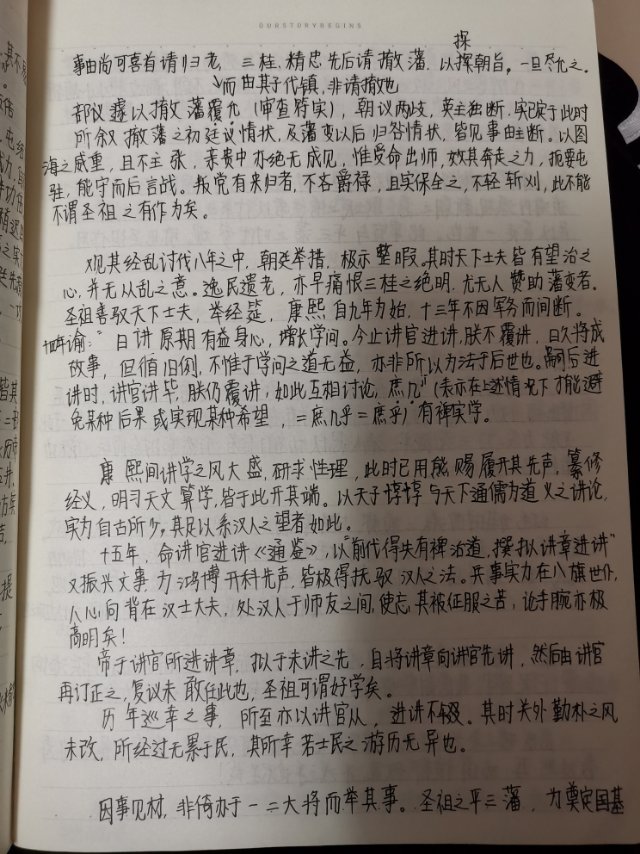 OURSTORYBEGINS
探
事由尚可喜首请归老，三桂、精忠先后请撤藩，以探朝旨，一旦尽允之。
↘而由其子代镇，非请撤也
部议遽以撤藩覆允（审查符实），朝议两歧，英主独断，实定于此时
所叙撤藩之初廷议情状，及藩变以后归咎情状，皆见事由主断。以图
海之威重，且不主张，亲贵中亦绝无成见，惟受命出师，效其奔走之力，扼要屯
驻，能守而后言战。叛党有来归者，不吝爵禄，且实保全之，不轻斩刈，此不能
不谓圣祖之有作为矣。
观其经乱讨伐八年之中，朝廷举措，极示整暇。其时天下士夫皆有望治之
心，并无从乱之意。逸民遗老，亦早痛恨三桂之绝明，尤无人赞助藩变者。
圣祖喜驭天下士夫，举经筵，康熙自九年为始，十三年不因军务而间断。
十四年谕："日讲原期有益身心，增长学问。今止讲官进讲，朕不覆讲，日久将成
故事，但循旧例，不惟于学问之道无益，亦非所以为法于后世也。嗣后进
讲时，讲官讲毕，朕仍覆讲；如此互相讨论，庶几"（表示在上述情况下才能避
免某种后果或实现某种希望，=庶几乎=庶乎）"有裨实学。
康熙间讲学之风大盛，研求性理，此时已用熊赐履开其先声，纂修
经义，明习天文算学，皆于此开其端。以天子惇惇与天下通儒为道义之讲论，
实为自古所少，其足以系汉人之望者如此。
十五年，命讲官进讲《通鉴》，以"前代得失有裨治道，撰拟讲章进讲"
又振兴文事为鸿博开科先声，皆极得抚驭汉人之法。兵事实力在八旗世仆，
人心向背在汉士大夫，处汉人于师友之间，使忘其被征服之苦；论手腕亦极
高明矣！
帝于讲官所进讲章，拟于未讲之先，自将讲章向讲官先讲，然后由讲官
再订正之，复议未敢任此也，圣祖可谓好学矣。
历年巡幸之事，所至亦以讲官从，进讲不辍。其时关外勤朴之风
未改，所经过无累于民，其所幸若士民之游历无异也。
因事见材，非倚办于一二大将而举其事。圣祖之平三藩，为奠定国基